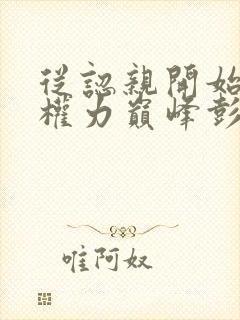 從認親開始
權力巔峰彭
唯阿奴